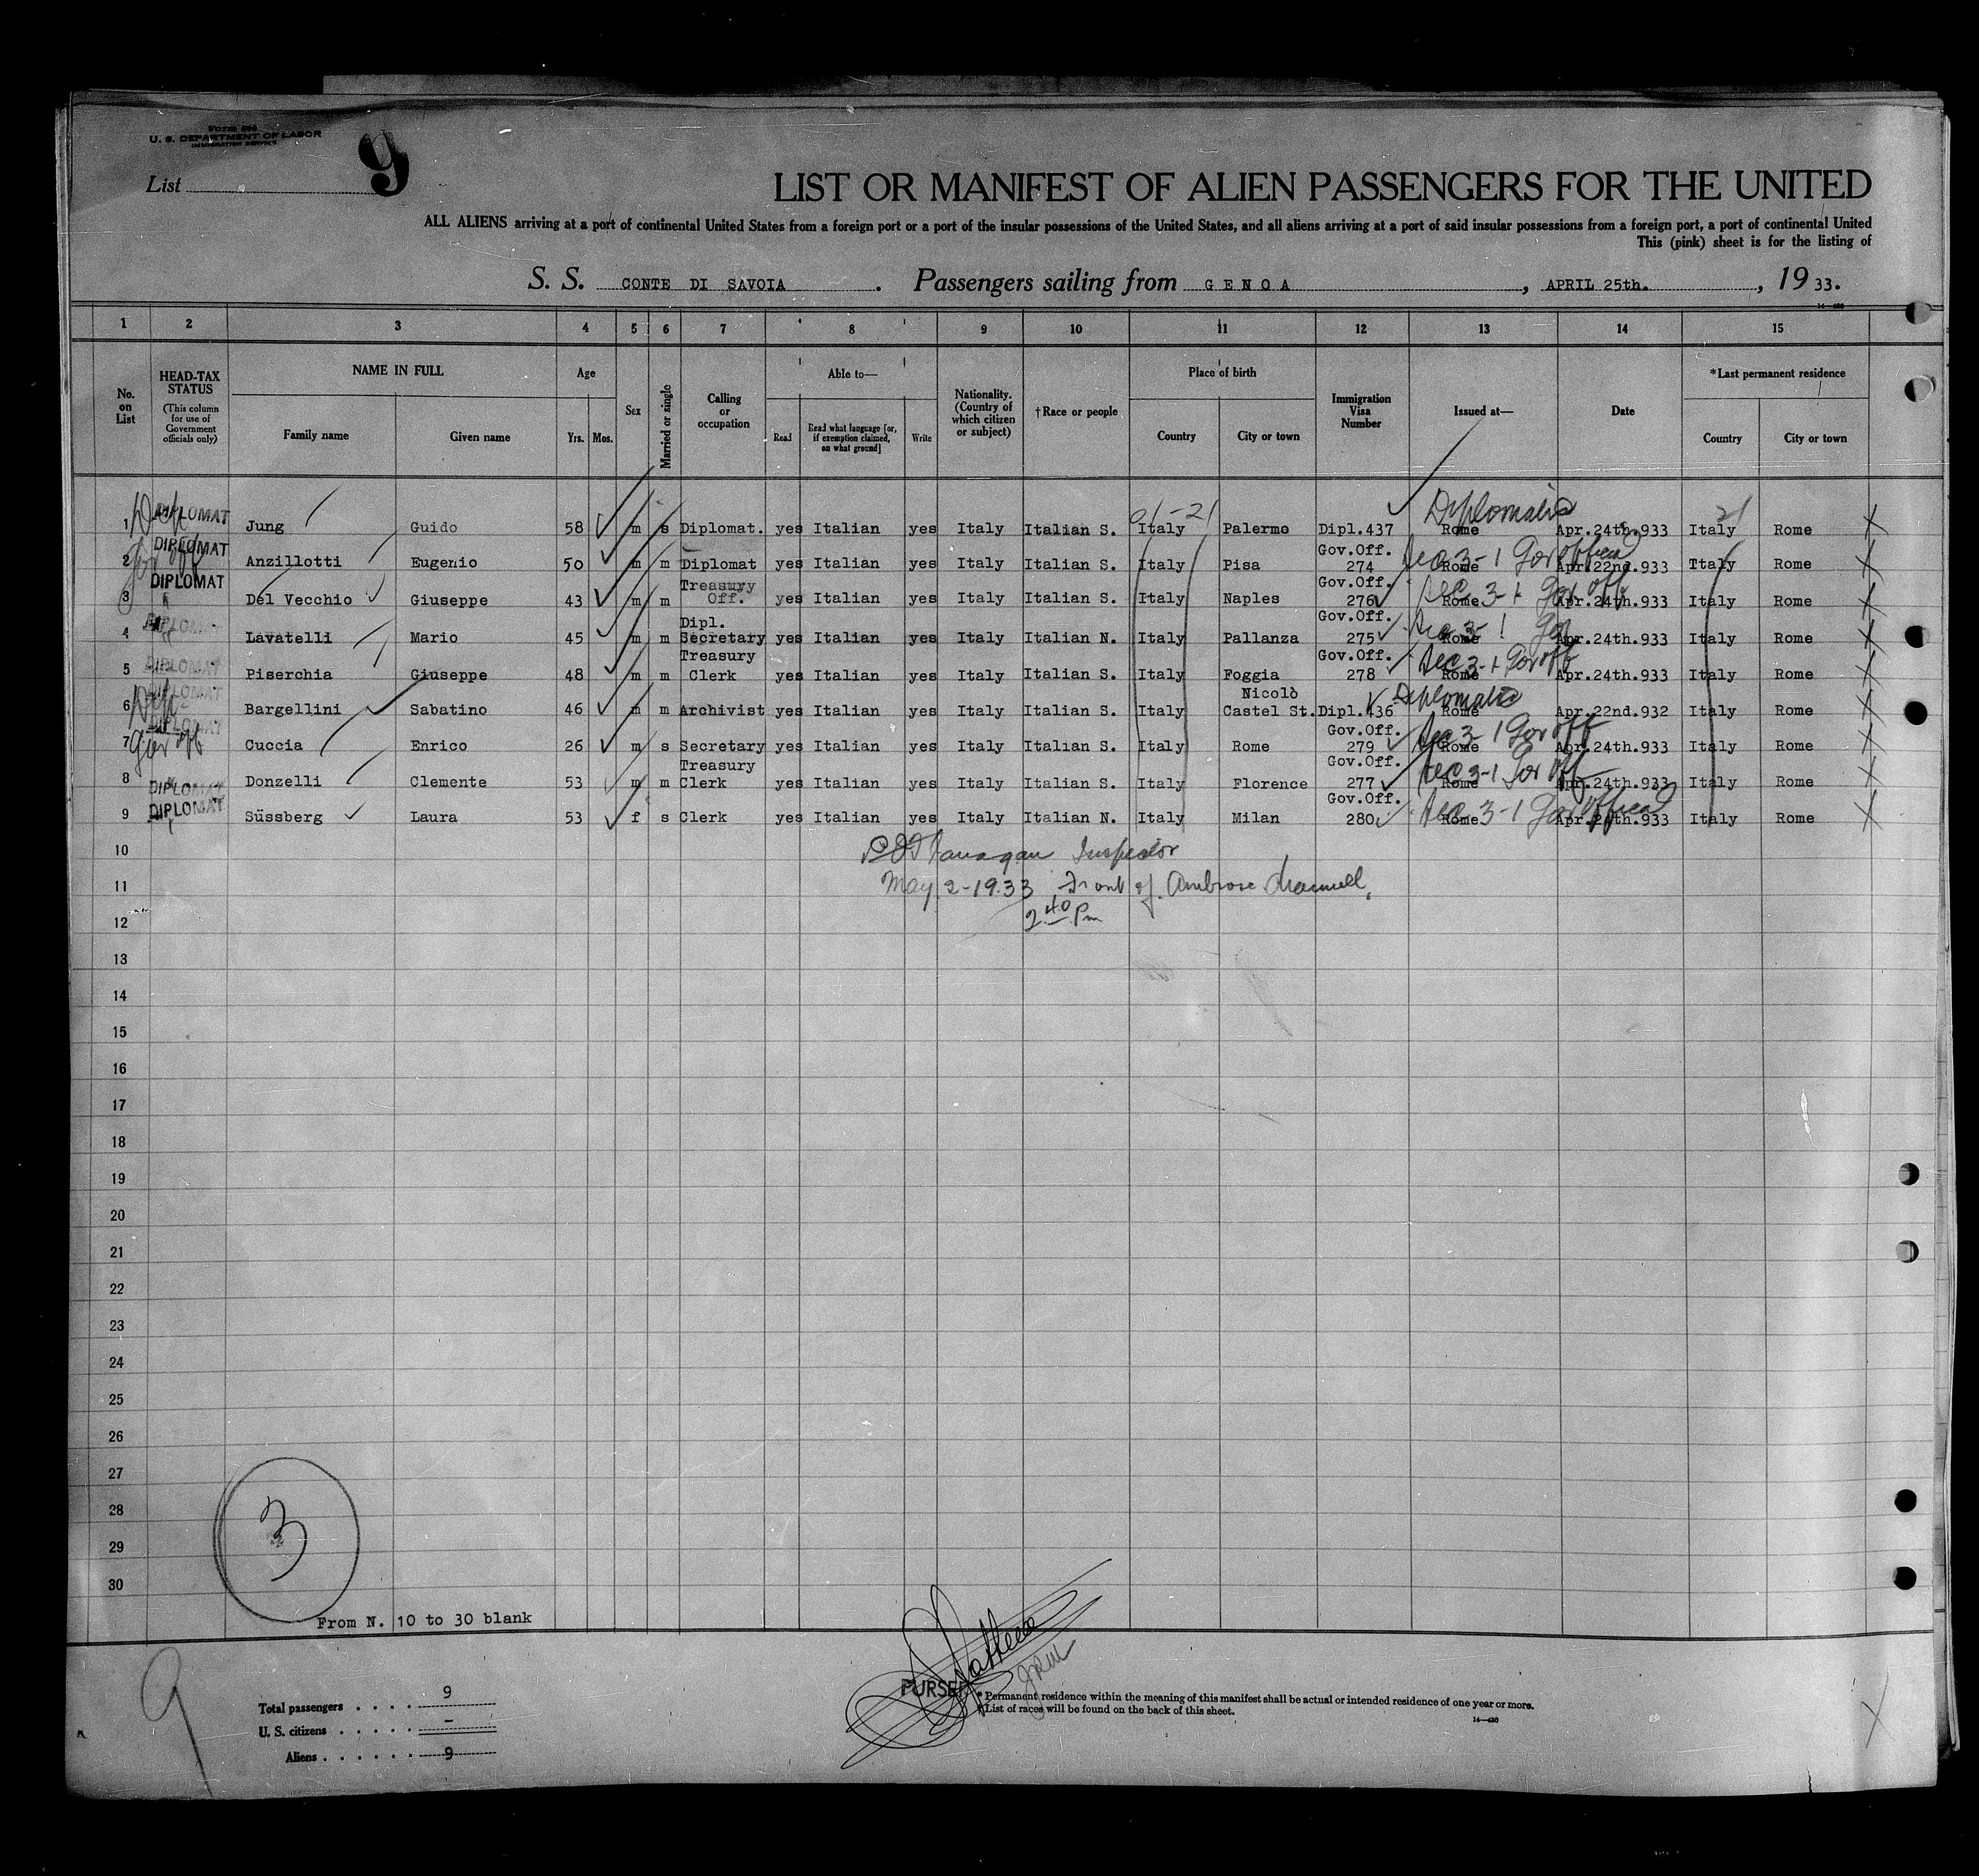 Form 500
U. S. DEPARTMENT OF LABOR
IMMIGRATION SERVICE
List 9
LIST OR MANIFEST OF ALIEN PASSENGERS FOR THE UNITED
ALL ALIENS arriving at a port of continental United States from a foreign port or a port of the insular possessions of the United States, and all aliens arriving at a port of said insular possessions from a foreign port, a port of continental United
This (pink) sheet is for the listing of
S. S. CONTE DI SAVOIA. Passengers sailing from GENOA, APRIL 25th., 1933.
1 2 3 4 5 6 7 8 9 10 11 12 13 14 15
No. on List
HEAD-TAX STATUS (This column for use of Government officials only)
NAME IN FULL
Family name
Given name
Age
Yrs. Mos.
Sex
Married or single
Calling or occupation
Able to—
Read
Read what language [or, if exemption claimed, on what ground]
Write
Nationality. (Country of which citizen or subject)
†Race or people
Place of birth
Country
City or town
Immigration Visa Number
Issued at—
Date
*Last permanent residence
Country
City or town
1 DIPLOMAT Jung Guido 58 m s Diplomat. yes Italian yes Italy Italian S. Italy Palermo Dipl.437 Diplomatic Rome Apr.24th.933 Italy Rome
2 DIPLOMAT Anzillotti Eugenio 50 m m Diplomat yes Italian yes Italy Italian S. Italy Pisa Gov.Off. 274 Sec 3-1 Gov official Rome Apr.22nd.933 Ttaly Rome
3 DIPLOMAT Del Vecchio Giuseppe 43 m m Treasury Off. yes Italian yes Italy Italian S. Italy Naples Gov.Off. 276 Sec 3-1 Gov off Rome Apr.24th.933 Italy Rome
4 DIPLOMAT Lavatelli Mario 45 m m Dipl. Secretary yes Italian yes Italy Italian N. Italy Pallanza Gov.Off. 275 Sec 3-1 Gov Rome Apr.24th.933 Italy Rome
5 DIPLOMAT Piserchia Giuseppe 48 m m Treasury Clerk yes Italian yes Italy Italian S. Italy Foggia Gov.Off. 278 Sec 3-1 Gov off Rome Apr.24th.933 Italy Rome
6 DIPLOMAT Bargellini Sabatino 46 m m Archivist yes Italian yes Italy Italian S. Italy Nicolò Castel St. Dipl.436 Diplomatic Rome Apr.22nd.932 Italy Rome
7 DIPLOMAT Gov off Cuccia Enrico 26 m s Secretary yes Italian yes Italy Italian S. Italy Rome Gov.Off. 279 Sec 3-1 Gov off Rome Apr.24th.933 Italy Rome
8 DIPLOMAT Donzelli Clemente 53 m m Treasury Clerk yes Italian yes Italy Italian S. Italy Florence Gov.Off. 277 Sec 3-1 Gov off Rome Apr.24th.933 Italy Rome
9 DIPLOMAT Süssberg Laura 53 f s Clerk yes Italian yes Italy Italian N. Italy Milan Gov.Off. 280 Sec 3-1 Gov official Rome Apr.24th.933 Italy Rome
10 Inspector
11 May 2-1933 Front of Ambrose Channell,
12 2 40 Pm
13
14
15
16
17
18
19
20
21
22
23
24
25
26
27
28
29
30
3
From N. 10 to 30 blank
9
Total passengers . . . . 9
U. S. citizens . . . . . -
Aliens . . . . . . 9
PURSER
* Permanent residence within the meaning of this manifest shall be actual or intended residence of one year or more.
† List of races will be found on the back of this sheet.